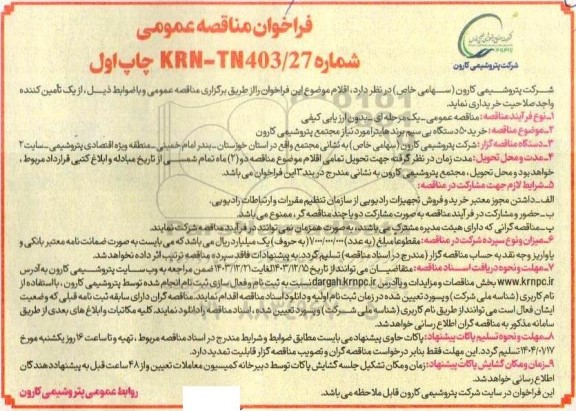 فراخوان مناقصه عمومی
شماره KRN-TN403/27 چاپ اول
شرکت پتروشیمی کارون
شرکت پتروشیمی کارون (سهامی خاص) در نظر دارد، اقلام موضوع این فراخوان را از طریق برگزاری مناقصه عمومی و با ضوابط ذیل، از یک تأمین کننده
واجد صلاحیت خریداری نماید.
۱-نوع فرآیند مناقصه: مناقصه عمومی-یک مرحله ای-بدون ارزیابی کیفی
۲-موضوع مناقصه: خرید ۵۰ دستگاه بی سیم برند هایترا مورد نیاز مجتمع پتروشیمی کارون
۳-دستگاه مناقصه گزار: شرکت پتروشیمی کارون (سهامی خاص) به نشانی مجتمع واقع در استان خوزستان-بندر امام خمینی-منطقه ویژه اقتصادی پتروشیمی-سایت۲
۴-مدت و محل تحویل: مدت زمان در نظر گرفته جهت تحویل تمامی اقلام موضوع مناقصه دو (۲) ماه تمام شمسی از تاریخ مبادله و ابلاغ کتبی قرارداد مربوط،
خواهد بود و محل تحویل، مجتمع پتروشیمی کارون به نشانی مندرج در بند۳ این فراخوان می باشد.
۵-شرایط لازم جهت مشارکت در مناقصه:
الف-داشتن مجوز معتبر خرید و فروش تجهیزات رادیویی از سازمان تنظیم مقررات و ارتباطات رادیویی.
ب-حضور و مشارکت در فرآیند مناقصه به صورت مشارکت دو یا چند مناقصه گر، ممنوع می باشد.
پ-مناقصه گرانی که دارای هیئت مدیره مشترک می باشند به صورت همزمان می توانند در فرآیند مناقصه شرکت نمایند.
۶-میزان و نوع سپرده شرکت در مناقصه: مقطوعا مبلغ (به عدد) ۱/۰۰۰/۰۰۰/۰۰۰ (به حروف) یک میلیارد ریال می باشد که می بایست به صورت ضمانت نامه معتبر بانکی و
یا واریز وجه نقد به حساب مناقصه گزار (مندرج در اسناد مناقصه) تسلیم گردد. به پیشنهادات فاقد سپرده مناقصه ترتیب اثر داده نخواهد شد.
۷-مهلت و نحوه دریافت اسناد مناقصه: متقاضیان می توانند از تاریخ ۱۴۰۳/۱۲/۱۵ لغایت ۱۴۰۳/۱۲/۲۱ ضمن مراجعه به وب سایت پتروشیمی کارون به آدرس
www.krnpc.ir بخش مناقصات و مزایدات و یا آدرس dargah.krnpc.ir نسبت به ثبت نام و فعال سازی ثبت نام انجام شده توسط پتروشیمی کارون، با استفاده از
نام کاربری (شناسه ملی شرکت) و پسورد تعیین شده در زمان ثبت نام اولیه و دانلود اسناد مناقصه اقدام نمایند. مناقصه گران دارای سابقه ثبت نامه قبلی که وضعیت
ایشان فعال است می توانند از طریق نام کاربری (شناسه ملی شرکت) و پسورد تعیین شده، اسناد مناقصه را دانلود نمایند. کلیه مکاتبات و ابلاغ های بعدی از طریق
سامانه مذکور به مناقصه گران اطلاع رسانی خواهد شد.
۸-مهلت و نحوه تسلیم پاکات پیشنهاد: پاکات حاوی پیشنهاد می بایست مطابق ضوابط و شرایط مندرج در اسناد مناقصه مربوط، تهیه و تا ساعت ۱۶ روز یکشنبه مورخ
۱۴۰۴/۰۱/۱۷ تسلیم گردد. این مهلت فقط بنابر درخواست مناقصه گران و تصویب مناقصه گزار قابلیت تمدید دارد.
۹-زمان و مکان گشایش پاکات پیشنهاد: زمان و مکان تشکیل جلسه گشایش پاکات توسط دبیرخانه کمیسیون معاملات تعیین و از ۴۸ ساعت قبل به پیشنهاد دهندگان
اطلاع رسانی خواهد شد.
این فراخوان در سایت شرکت پتروشیمی کارون قابل ملاحظه می باشد.
روابط عمومی پتروشیمی کارون